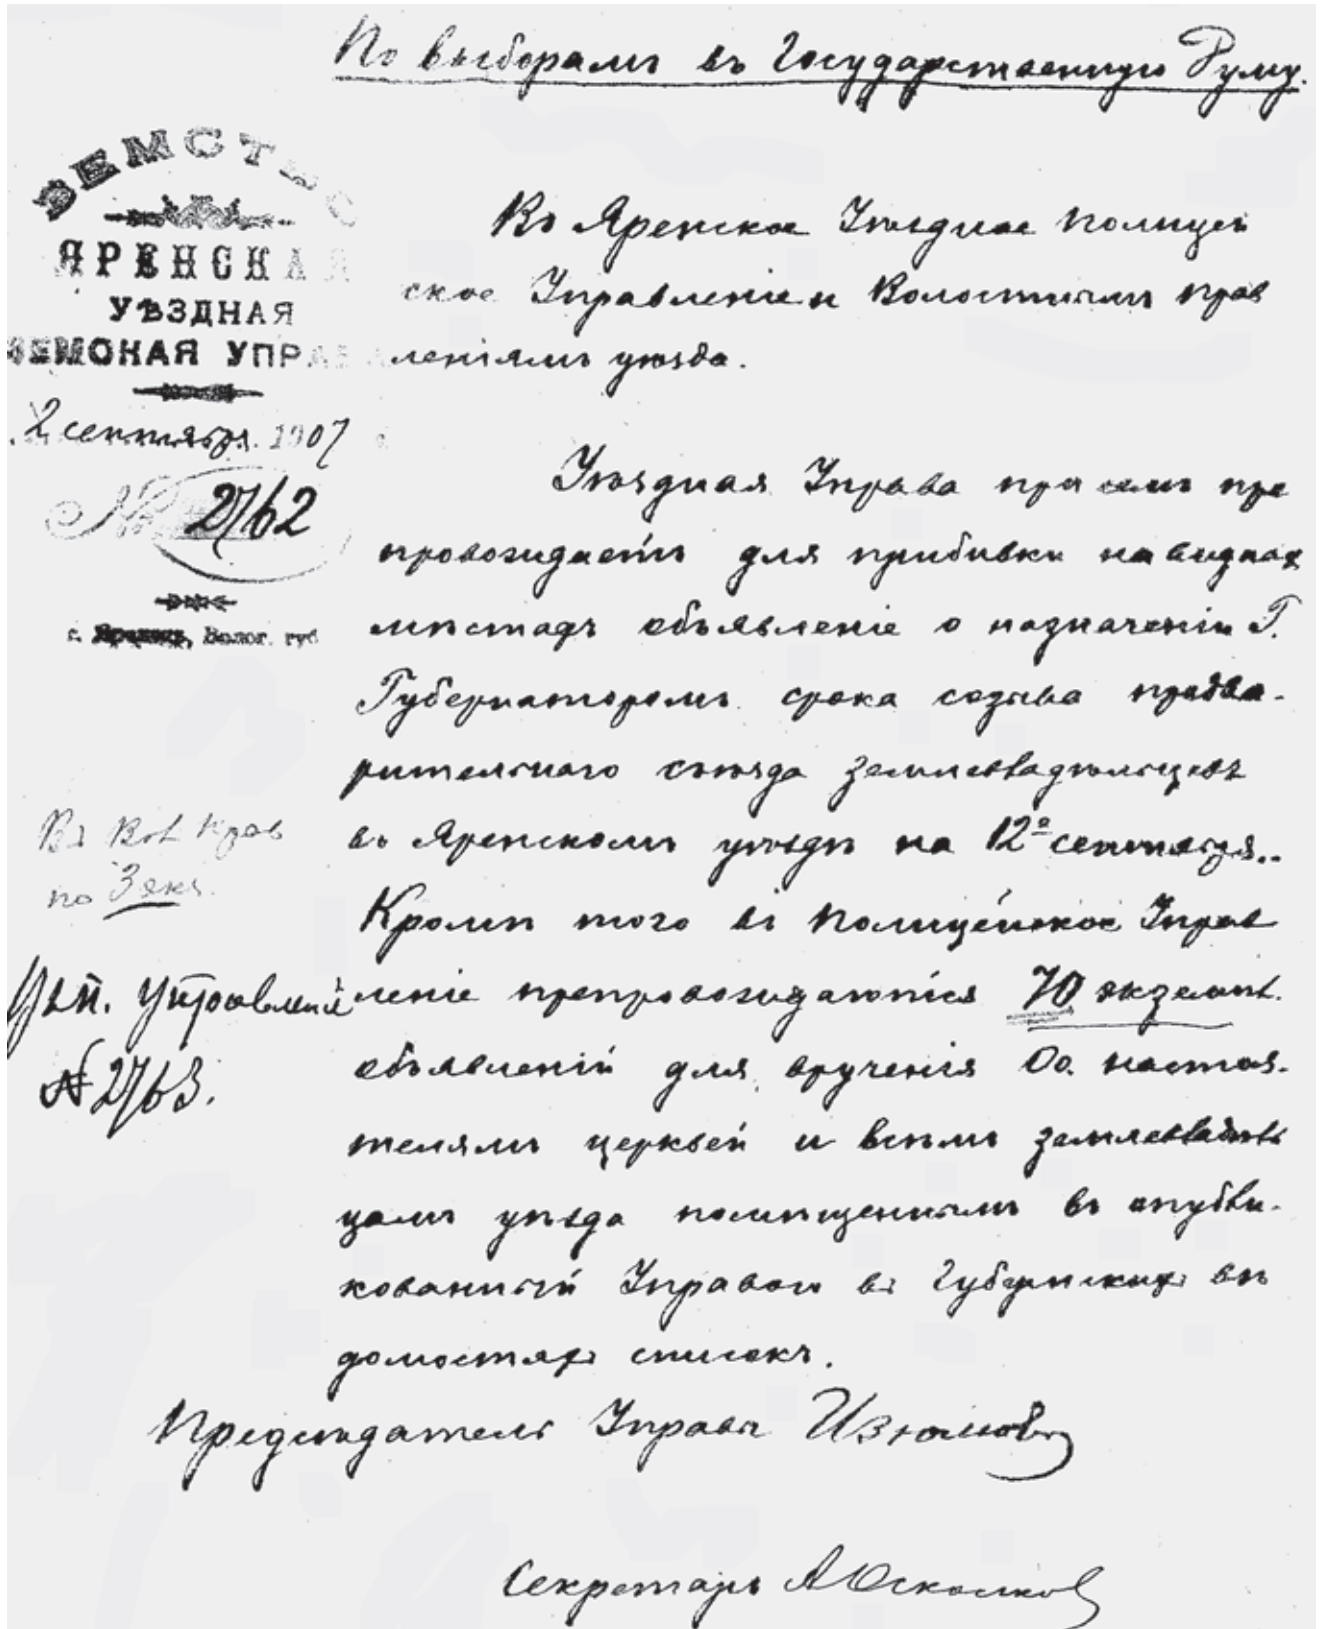 По выборамъ въ Государственную Думу.
ЗЕМСТВО
ЯРЕНСКАЯ
УѢЗДНАЯ
ЗЕМСКАЯ УПРАВА
2 сентября 1907
№ 2762
г. Яренскъ, Волог. губ.
Въ Яренское Уѣздное Полицей
ское Управленіе и Волостнымъ прав
леніямъ уѣзда.
Уѣздная Управа при семъ пре
провождаетъ для прибивки на видныхъ
мѣстахъ объявленіе о назначеніи Г.
Губернаторомъ срока созыва предва-
рительнаго съѣзда землевладѣльцевъ
въ Яренскомъ уѣздѣ на 12е сентября.
Кромѣ того въ Полицейское Управ
леніе препровождаются 70 экземп.
объявленій для врученія Оо. настоя-
телямъ церквей и всѣмъ землевладѣль
цамъ уѣзда помѣщеннымъ въ опубли-
кованный Управою въ Губернскихъ вѣ
домостяхъ списокъ.
Въ Вол Прав
по 3 экз.
Управленій
№ 2763.
Предсѣдатель Управы Изюмовъ
Секретарь А